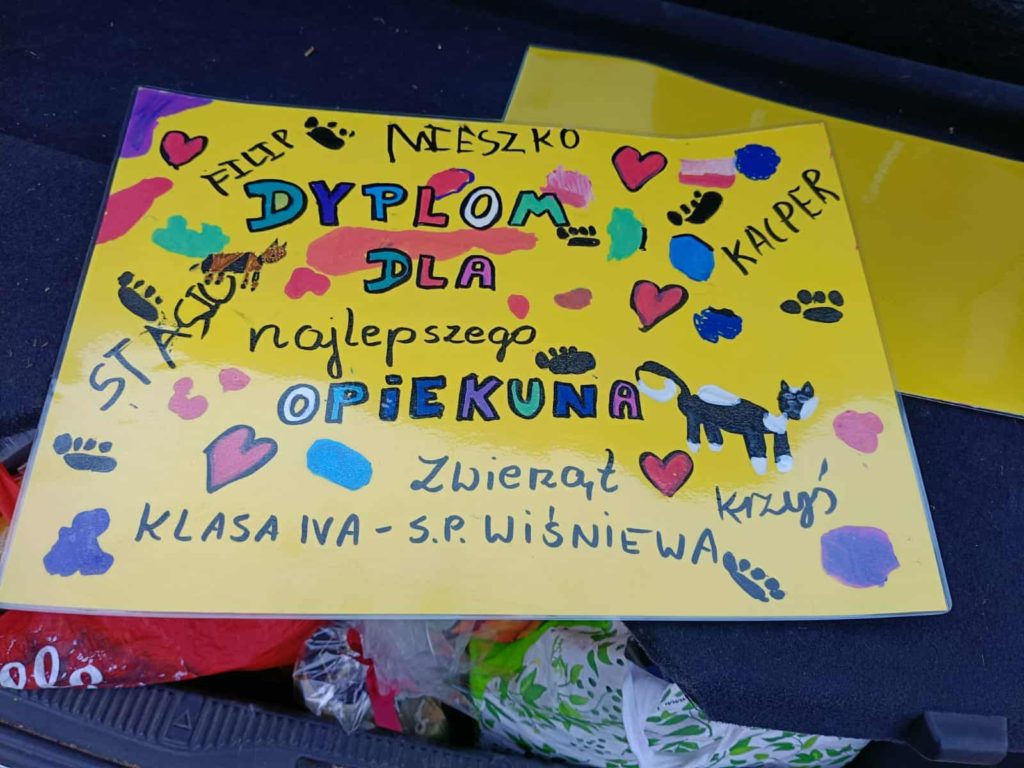 FILIP
MIESZKO
KACPER
DYPLOM
DLA
STASIU
najlepszego
OPiEKUNA
Zwierząt
krzyś
KLASA IVA - S.P. WiŚNIEWA